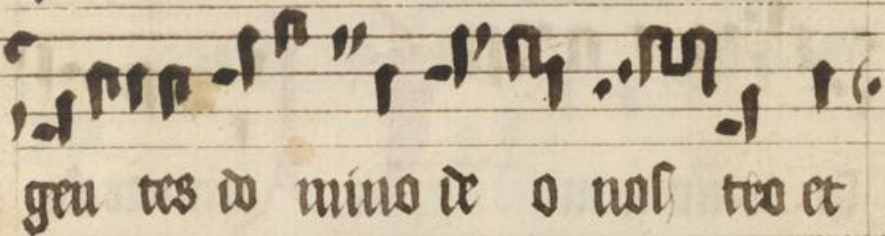 gen tes do mino de o nos tro et